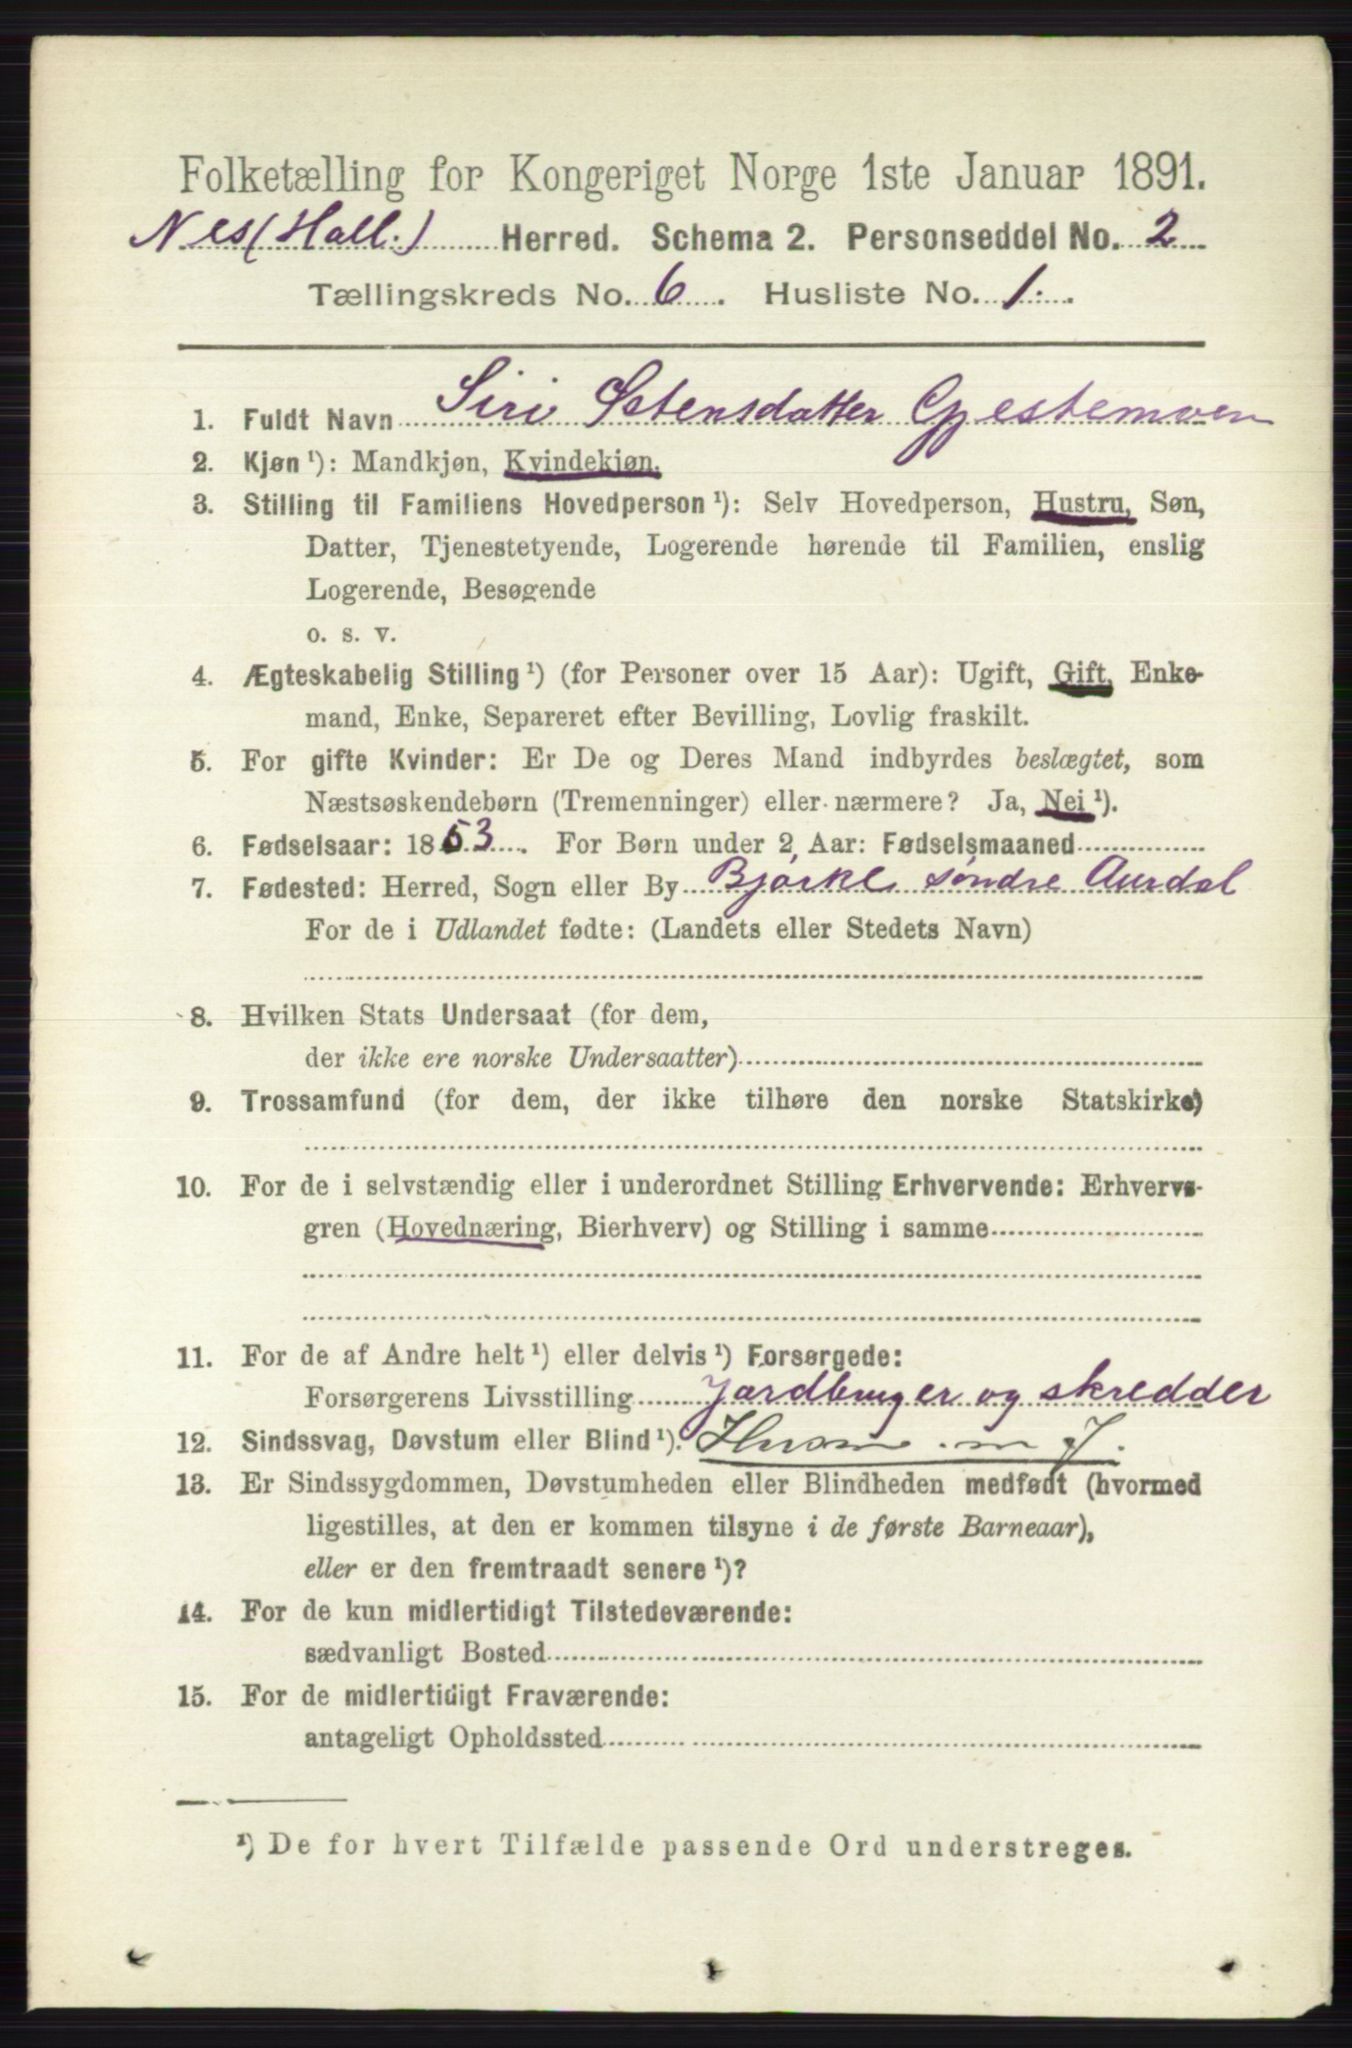 Folketælling for Kongeriget Norge 1ste Januar 1891.
Nes (Hall.) Herred. Schema 2. Personseddel No. 2
Tællingskreds No. 6. Husliste No. 1.
1. Fuldt Navn Siri Setensdatter Gjestemoen
2. Kjøn ¹): Mandkjøn, Kvindekjøn.
3. Stilling til Familiens Hovedperson ¹): Selv Hovedperson, Hustru, Søn,
Datter, Tjenestetyende, Logerende hørende til Familien, enslig
Logerende, Besøgende
o. s. v.
4. Ægteskabelig Stilling ¹) (for Personer over 15 Aar): Ugift, Gift, Enke-
mand, Enke, Separeret efter Bevilling, Lovlig fraskilt.
5. For gifte Kvinder: Er De og Deres Mand indbyrdes beslægtet, som
Næstsøskendebørn (Tremenninger) eller nærmere? Ja, Nei ¹).
6. Fødselsaar: 1853. For Børn under 2 Aar: Fødselsmaaned
7. Fødested: Herred, Sogn eller By Bjørke, søndre Aurdal
For de i Udlandet fødte: (Landets eller Stedets Navn)
8. Hvilken Stats Undersaat (for dem,
der ikke ere norske Undersaatter)
9. Trossamfund (for dem, der ikke tilhøre den norske Statskirke)
10. For de i selvstændig eller i underordnet Stilling Erhvervende: Erhvervs-
gren (Hovednæring, Bierhverv) og Stilling i samme
11. For de af Andre helt ¹) eller delvis ¹) Forsørgede:
Forsørgerens Livsstilling Jordbruger og skredder
12. Sindssvag, Døvstum eller Blind ¹). Husm. m J.
13. Er Sindssygdommen, Døvstumheden eller Blindheden medfødt (hvormed
ligestilles, at den er kommen tilsyne i de første Barneaar),
eller er den fremtraadt senere ¹)?
14. For de kun midlertidigt Tilstedeværende:
sædvanligt Bosted
15. For de midlertidigt Fraværende:
antageligt Opholdssted
¹) De for hvert Tilfælde passende Ord understreges.